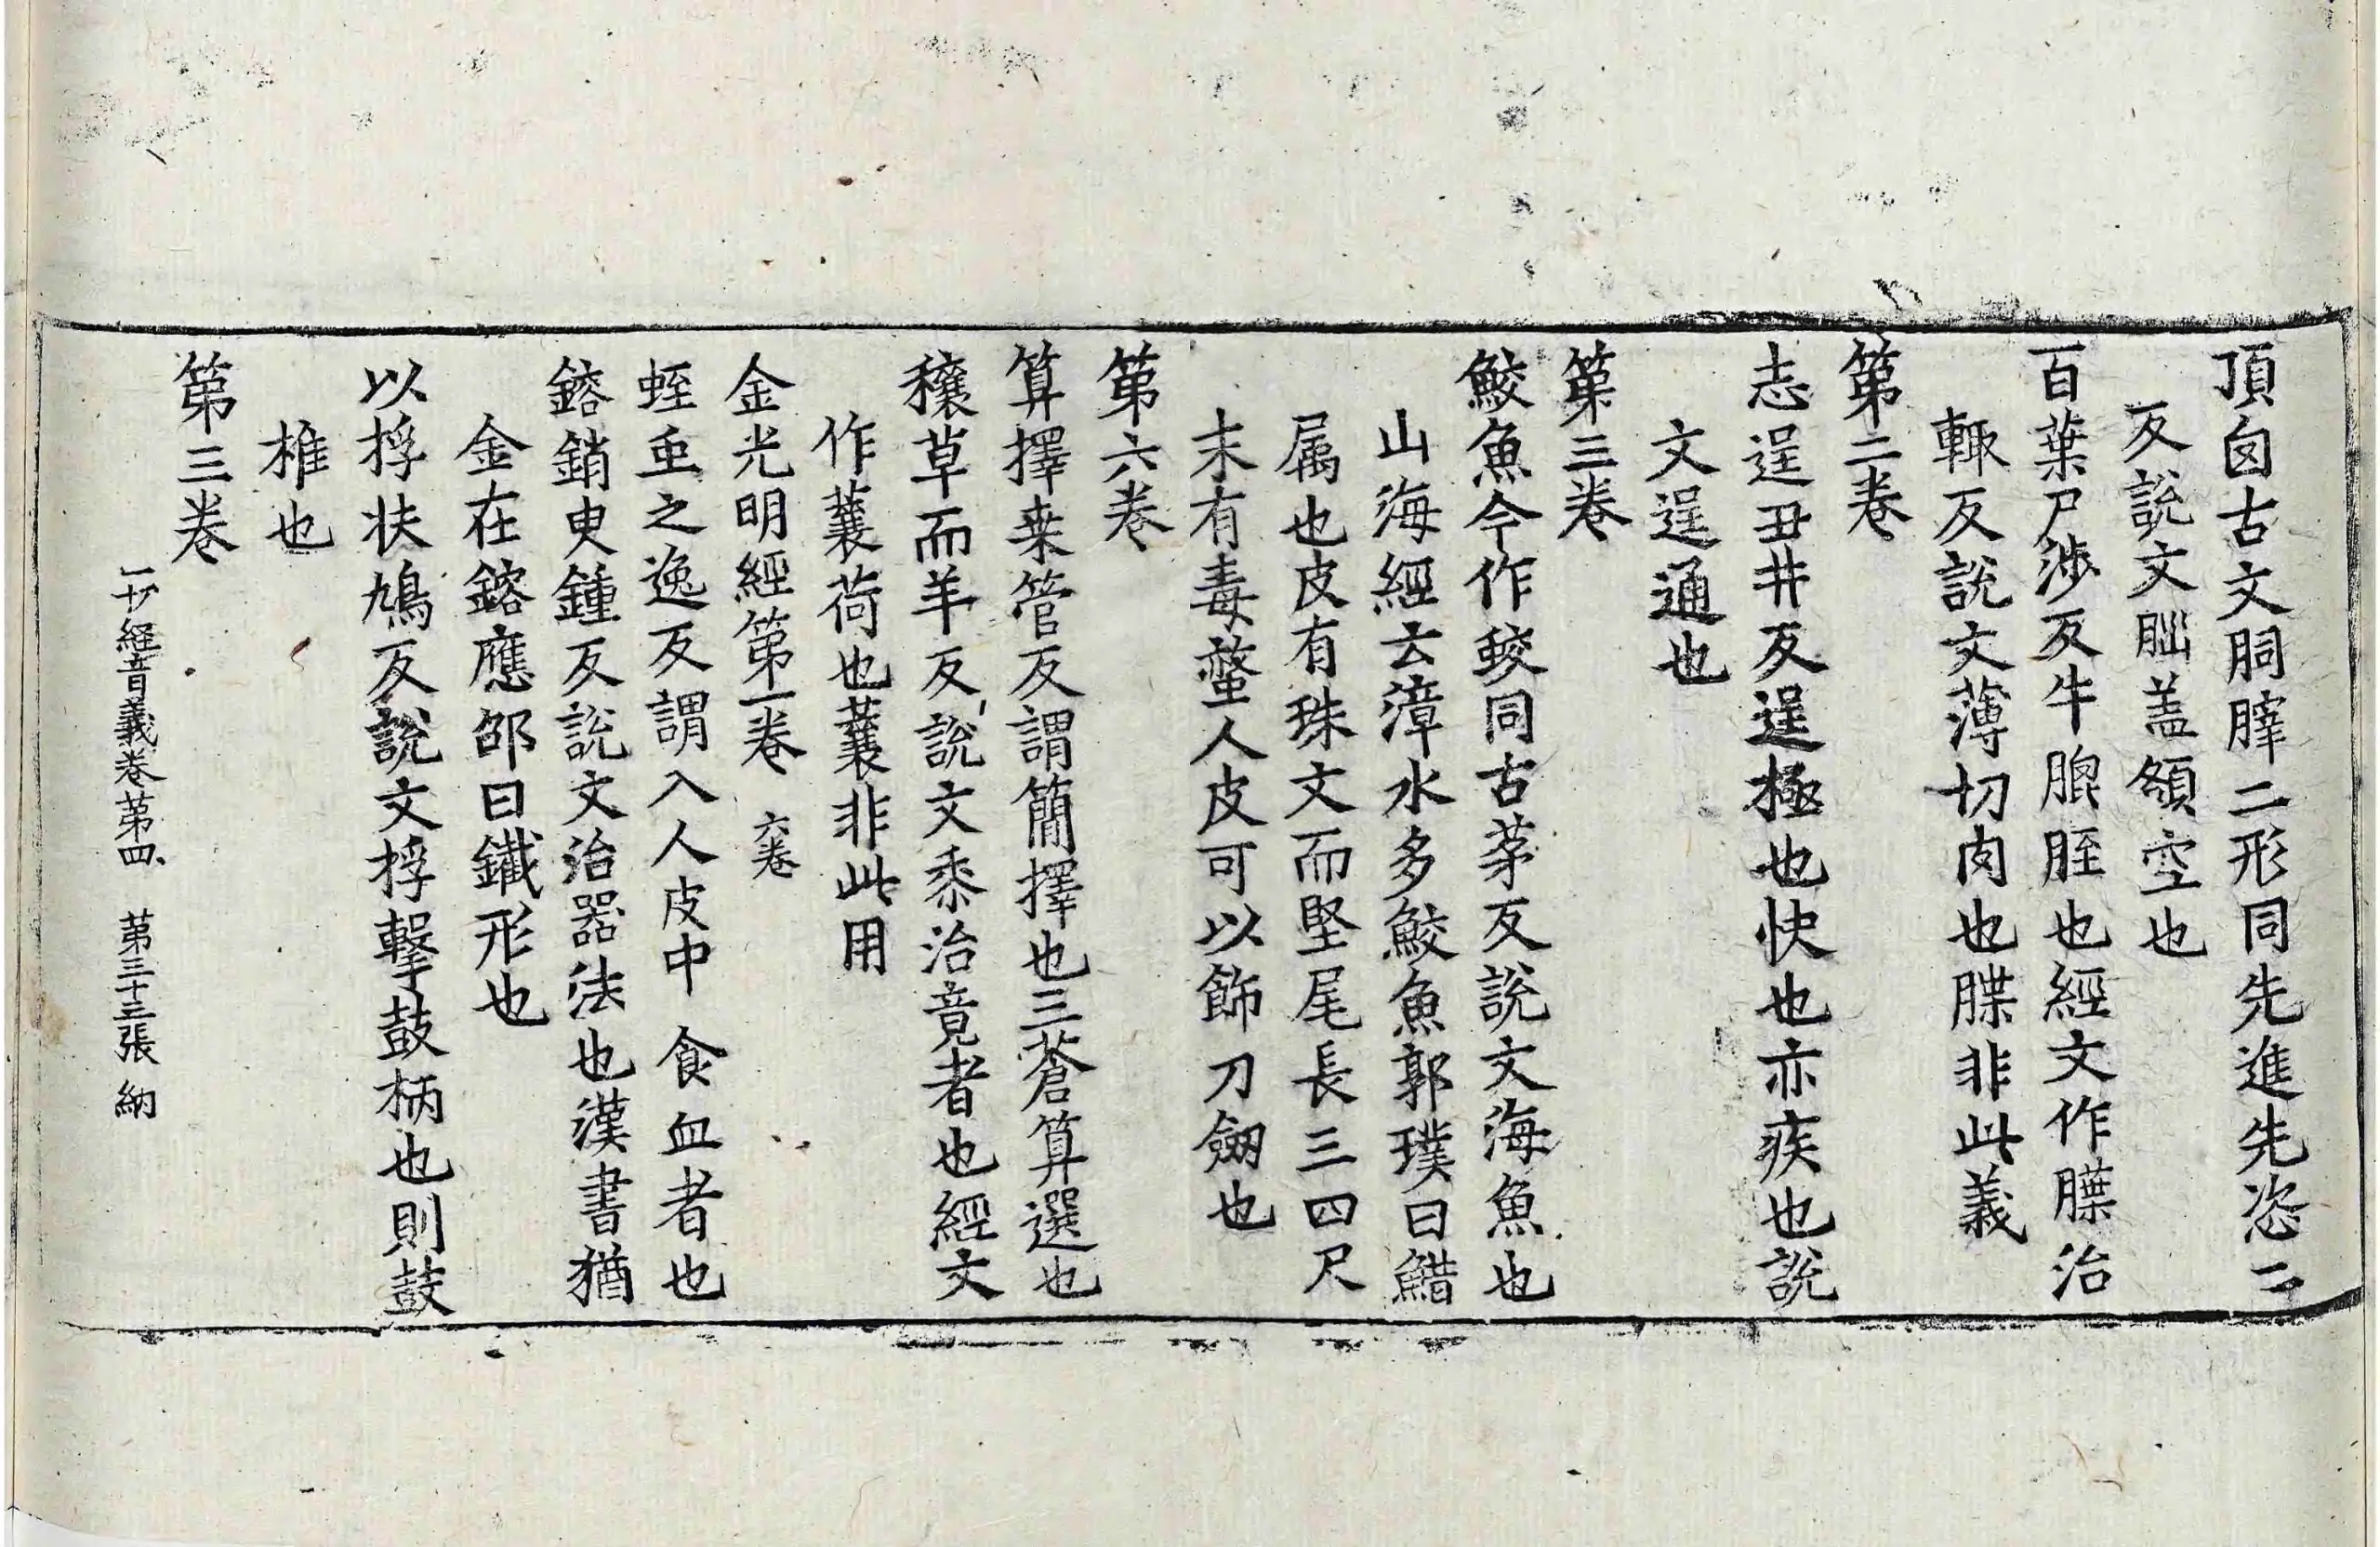 頂囟古文𦛁膟二形同先進先恣二
反說文𦛁盖頟空也
百葉尸涉反牛膍胵也經文作䐑治
輙反說文薄切肉也䐑非此義
第二卷
志逞丑井反逞極也快也亦疾也說
文逞通也
第三卷
鮫魚今作蛟同古茅反說文海魚也
山海經云漳水多鮫魚郭璞曰䱜
属也皮有珠文而堅尾長三四尺
末有毒螫人皮可以飾刀劒也
第六卷
算擇桒管反謂簡擇也三蒼算選也
穰草而羊反說文黍治竟者也經文
作蘘荷也蘘非此用
金光明經第一卷 六卷
蛭虫之逸反謂入人皮中食血者也
鎔銷臾鍾反說文治器法也漢書猶
金在鎔應邵曰鐵形也
以桴扶鳩反說文桴擊鼓柄也則鼓
椎也
第三卷
一切経音義卷第四 第三十三張 納